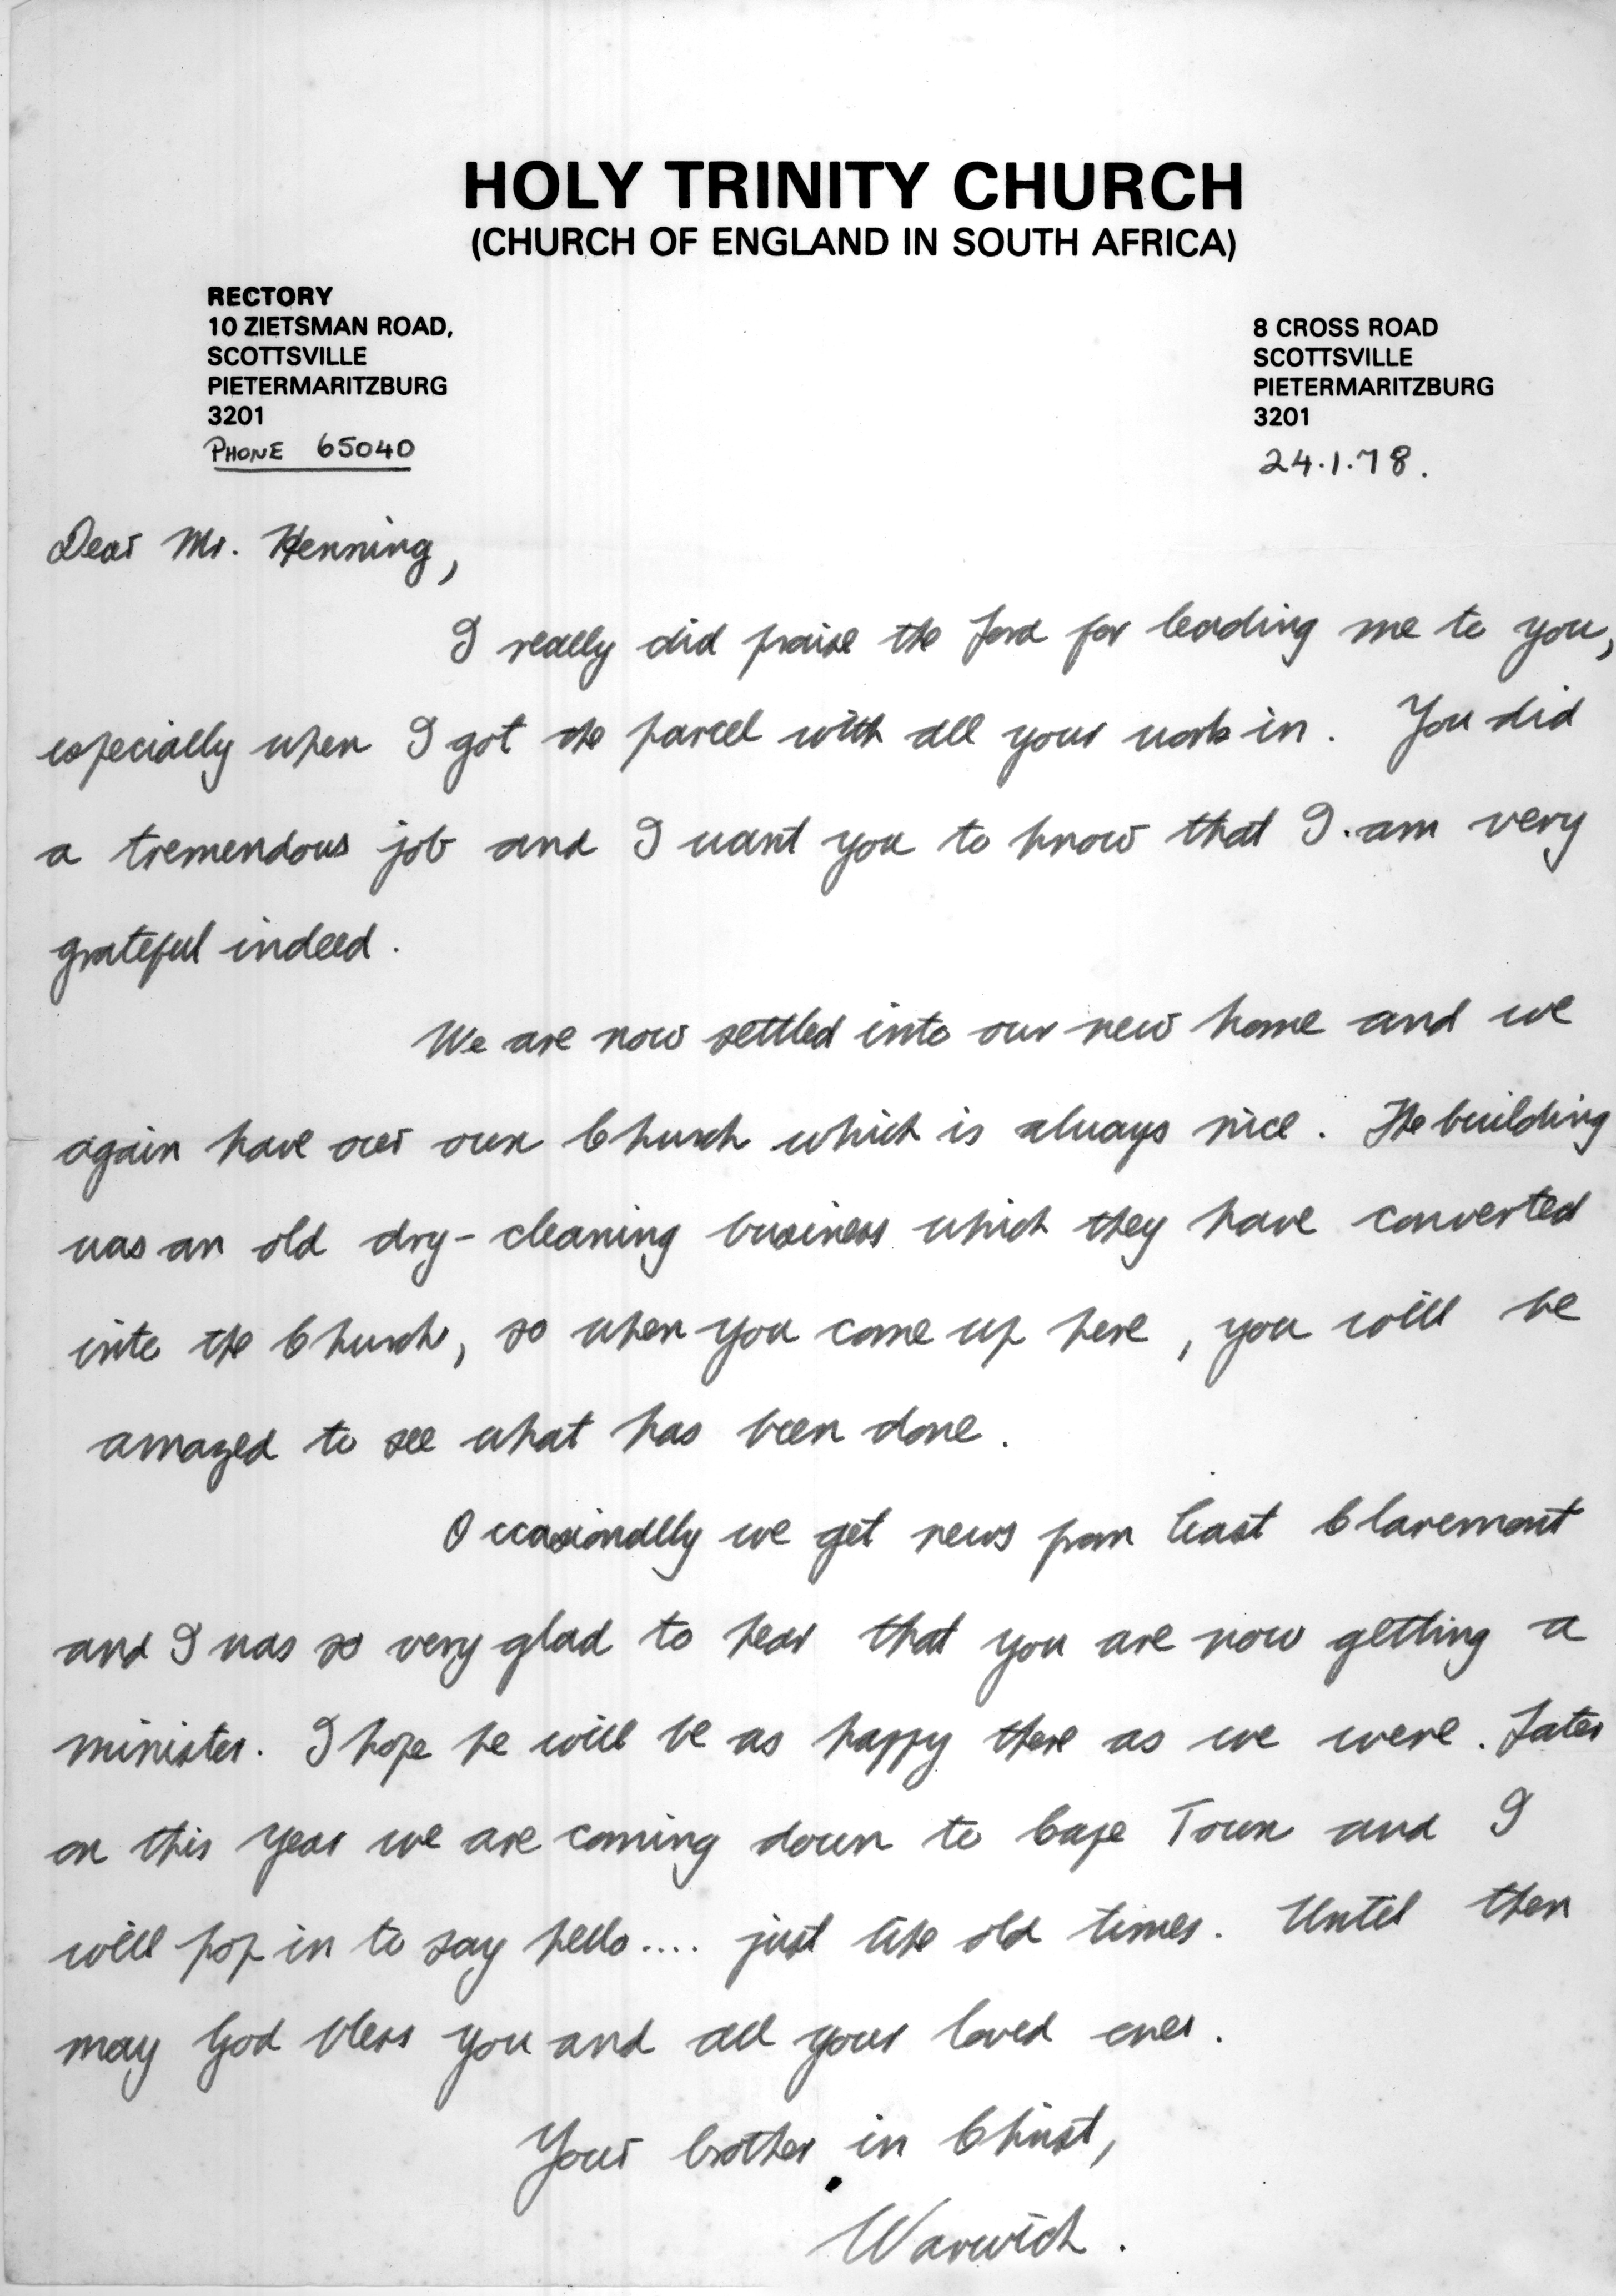 HOLY TRINITY CHURCH
(CHURCH OF ENGLAND IN SOUTH AFRICA)
RECTORY
10 ZIETSMAN ROAD,
SCOTTSVILLE
PIETERMARITZBURG
3201
PHONE 65040
8 CROSS ROAD
SCOTTSVILLE
PIETERMARITZBURG
3201
24.1.78.
Dear Mr. Henning,
I really did praise the Lord for leading me to you,
especially when I got the parcel with all your work in. You did
a tremendous job and I want you to know that I am very
grateful indeed.
We are now settled into our new home and we
again have our own Church which is always nice. The building
was an old dry-cleaning business which they have converted
into the Church, so when you come up here, you will be
amazed to see what has been done.
Occasionally we get news from East Claremont
and I was so very glad to hear that you are now getting a
minister. I hope he will be as happy there as we were. Later
on this year we are coming down to Cape Town and I
will pop in to say hello.... just like old times. Until then
may God bless you and all your loved ones.
Your brother in Christ,
Warwick.